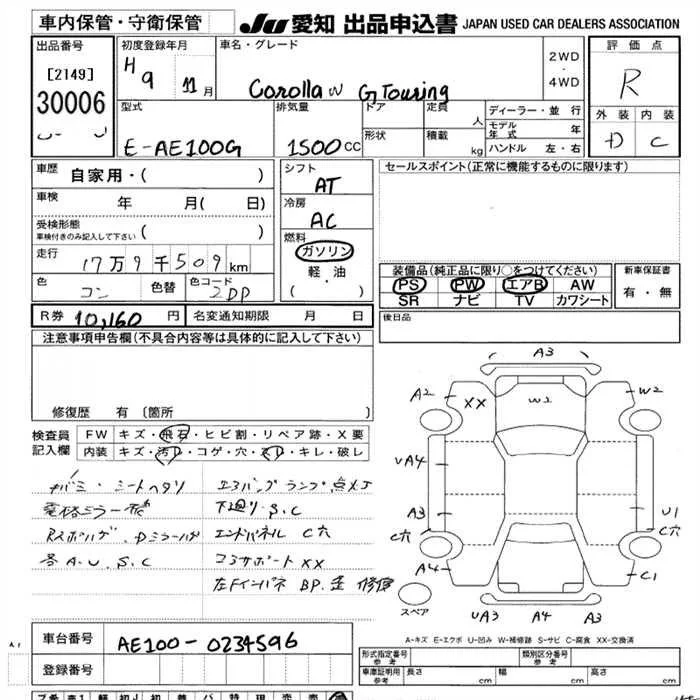 車内保管・守衛保管
JU 愛知 出品申込書 JAPAN USED CAR DEALERS ASSOCIATION
出品番号
[2149]
30006
初度登録年月
H 9 11月
車名・グレード
Corolla W G Touring
2WD
・
4WD
評価点
R
外装 内装
D C
型式
E-AE100G
排気量
1500cc
ドア
形状
定員
人
積載
kg
ディーラー・並行
モデル年式 年
ハンドル 左・右
車歴
自家用・( )
車検
年 月( 日)
受検形態
車検付きのみ記入して下さい ( )
走行
17万9千509km
色
コン
色替
色コード
2DP
シフト
AT
冷房
AC
燃料
ガソリン
軽・油
( ・ )
セールスポイント(正常に機能するものに限ります)
装備品(純正品に限り○をつけてください)
PS PW エアB AW
SR ナビ TV カワシート
新車保証書
有・無
R券 10,160 円
名変通知期限 月 日
後日品
注意事項申告欄(不具合内容等は具体的に記入して下さい)
修復歴 有〔箇所 〕
検査員
記入欄
FW キズ・飛石・ヒビ割・リペア跡・X要
内装 キズ・汚レ・コゲ・穴・スレ・キレ・破レ
シートヘタリ
エアバッグランプ点灯
下廻りS.C
エンドパネル C穴
各A.U.S.C
コアサポートXX
左Fインパネ BP.歪 修復
A3
A2
XX
W2
W2
UA4
A3
C穴
A4
U1
C穴
C1
スペア
UA3 A4 A3
A-キズ E-エクボ U-凹み W-補修跡 S-サビ C-腐食 XX-交換済
車台番号
AE100-0234596
登録番号
形式指定番号
参考
類別区分番号
参考
車庫証明用
参考
長さ cm
幅 cm
高さ cm